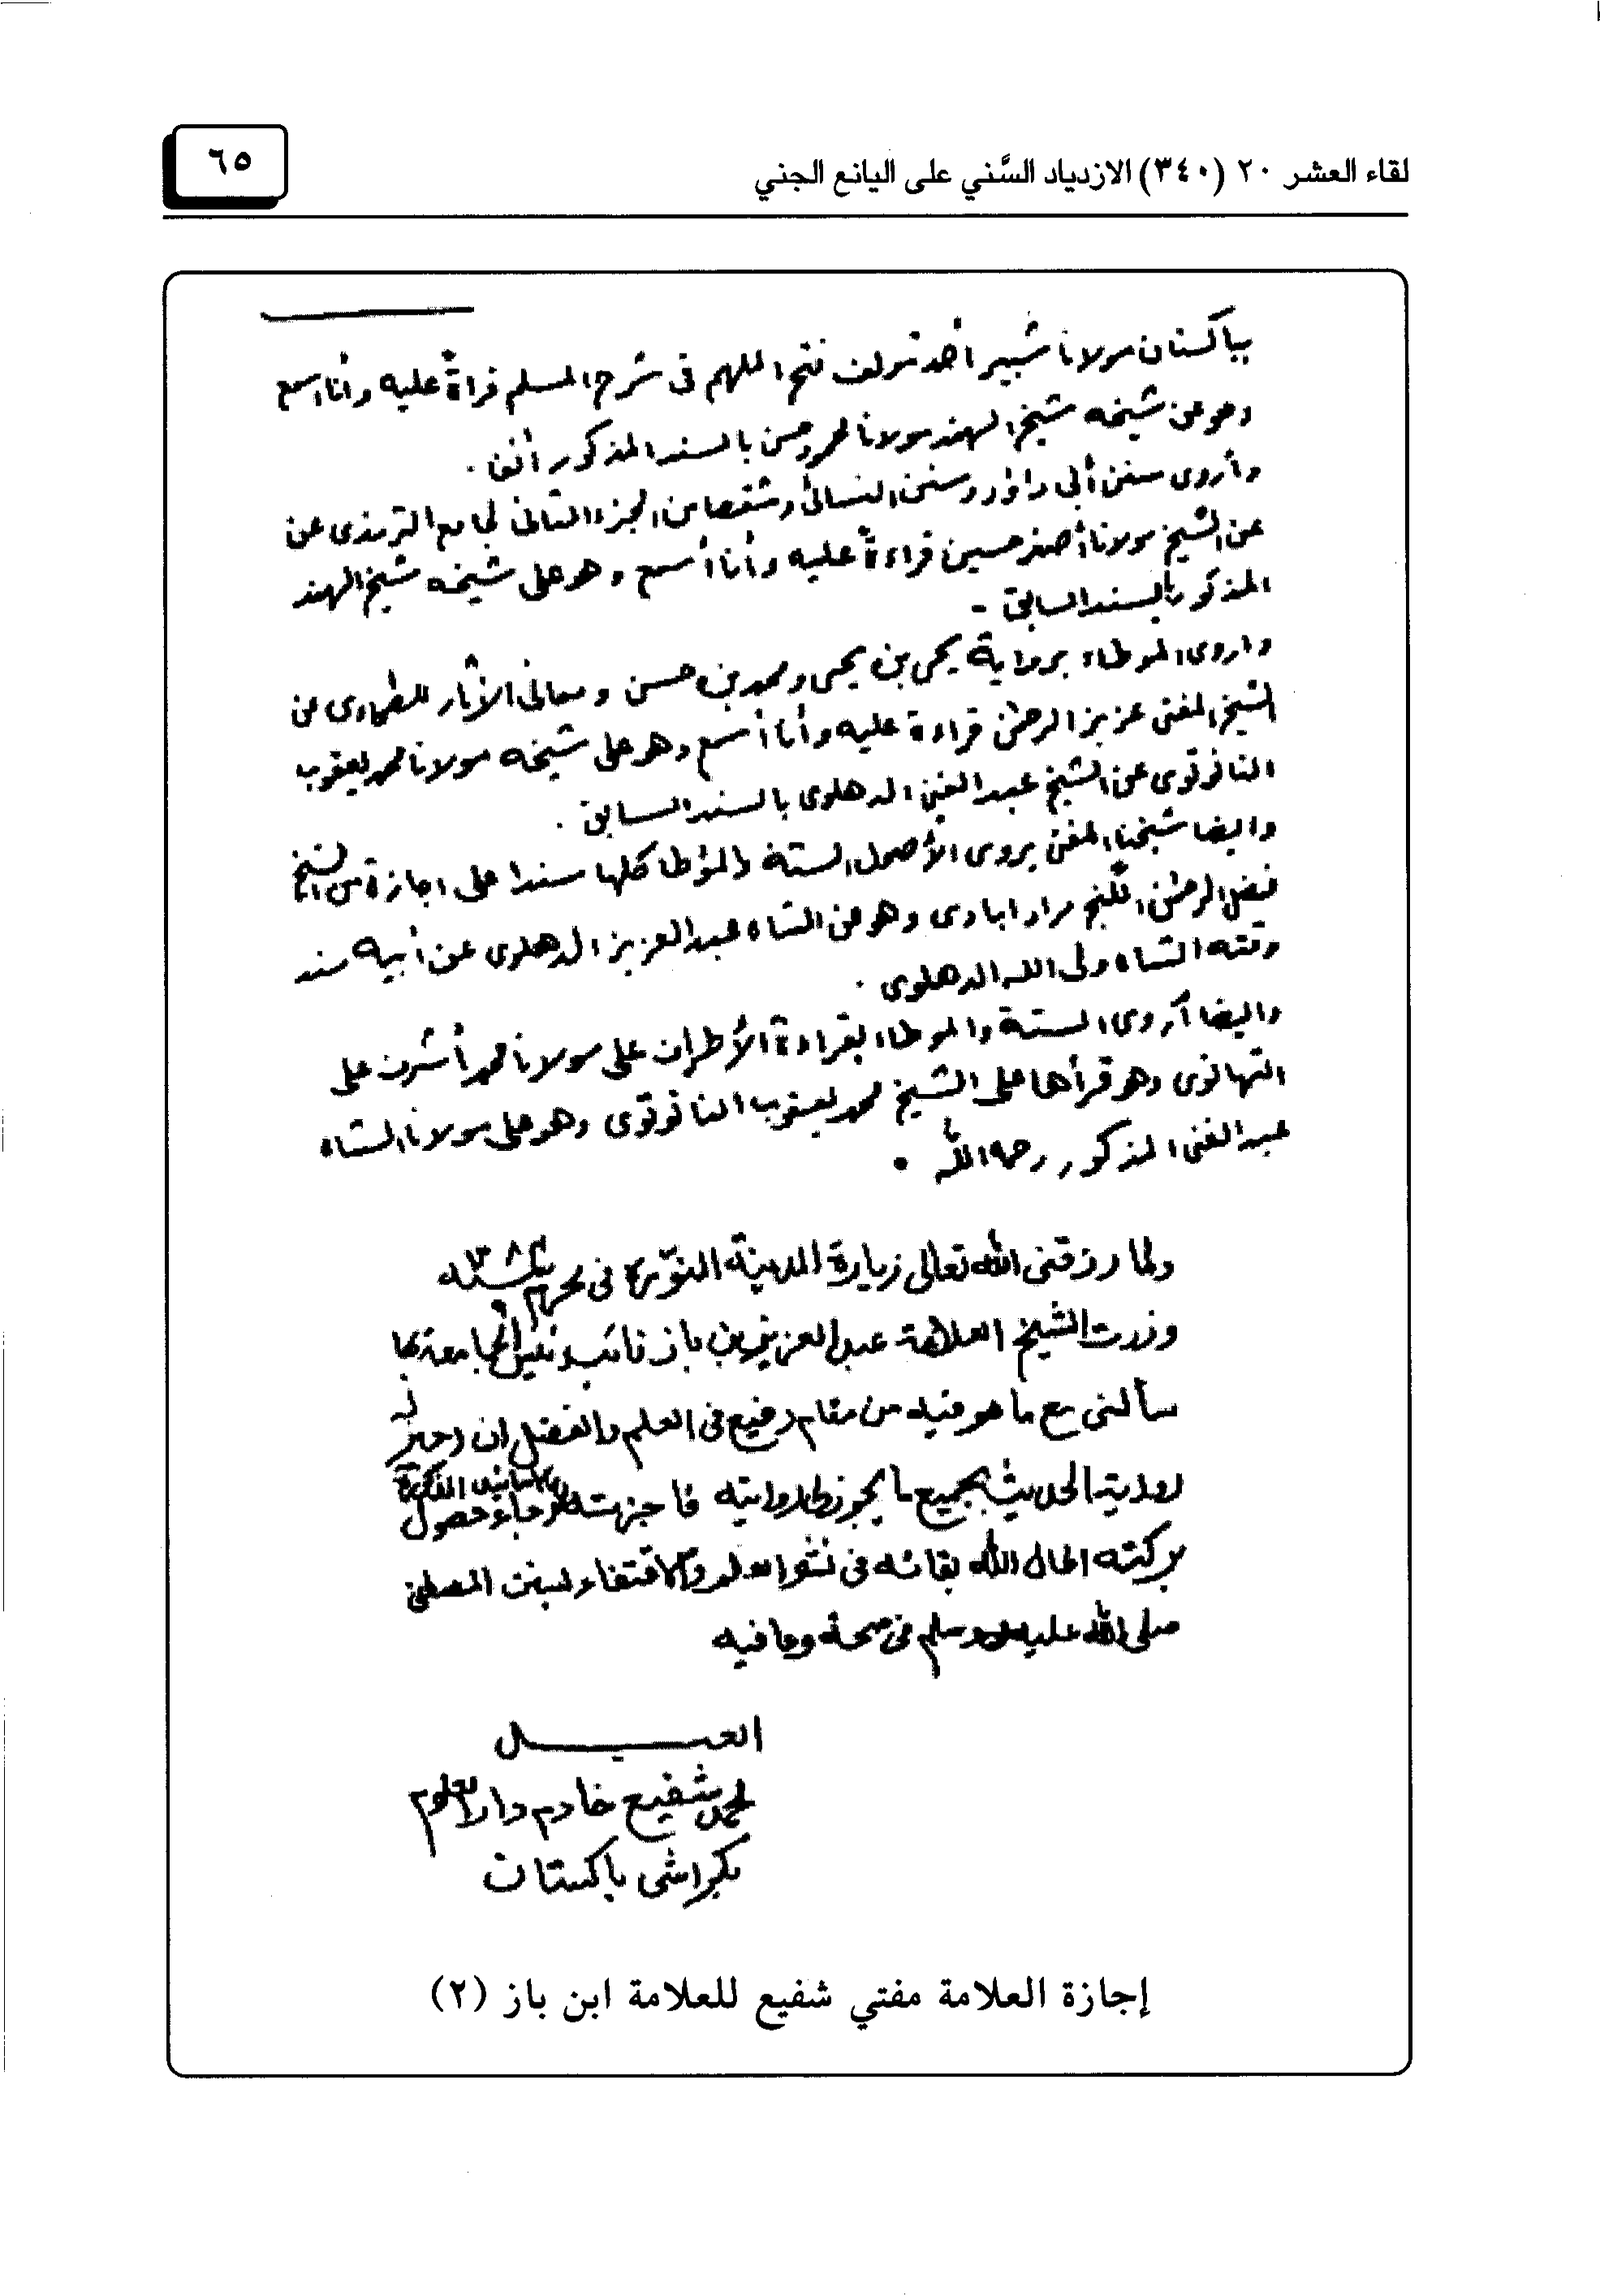 لقاء العشر ٢٠ (٣٤٠) الازدياد السَّني على اليانع الجني
٦٥
بباكستان مولانا شبير أحمد مولف فتح الملهم فى شرح المسلم قراة عليه وأنا اسمع
وهو عن شيخه شيخ الهند مولانا محمود حسن بالسند المذكور أنفا .
وأروى سنن أبى داؤد وسنن النسائى وشقصا من الجزء الثانى لجامع الترمذى عن
عن الشيخ مولانا أصغر حسين قراءة عليه وأنا أسمع وهو على شيخه شيخ الهند
المذكور بالسند السابق -
واروى الموطاء برواية يحى بن يحى ومحمد بن حسن ومعانى الأثار للطحاوى عن
الشيخ المفتى عزيز الرحمٰن قراءة عليه وأنا أسمع وهو على شيخه مولانا محمد يعقوب
النانوتوى عن الشيخ عبد الغنى الدهلوى بالسند السابق .
وايضا شيخنا المفتى يروى الأصول الستة والمؤطا كلها سندا على اجازة من الشيخ
فيض الرحمٰن الگنج مراد ابادى وهو عن الشاه عبد العزيز الدهلوى عن أبيه سند
وقته الشاه ولى الله الدهلوى .
وايضا أروى الستة والموطاء بقراءة الأطراف على مولانا محمد أشرف على
التهانوى وهو قرأها على الشيخ محمد يعقوب النانوتوى وهو على مولانا الشاه
عبد الغنى المذكور رحمه الله .
ولما رزقنى الله تعالى زيارة المدينة المنوّرة فى محرم سنه
وزرت الشيخ العلامة عبد العزيز بن باز نائب رئيس الجامعة بها
سألنى مع ما هو فيه من مقام رفيع فى العلم والفضل ان اجيز له
رواية الحديث بجميع ما يجوز لى روايته فاجزته بالاسانيد المذكورة رجاء حصول
بركته اطال الله بقائه فى نشر العلم والاقتفاء لسنن المصطفى
صلى الله عليه وسلم فى صحة وعافيه
العبـــــد
محمد شفيع خادم دار العلوم
بكراتشى باكستان
إجازة العلامة مفتي شفيع للعلامة ابن باز (٢)